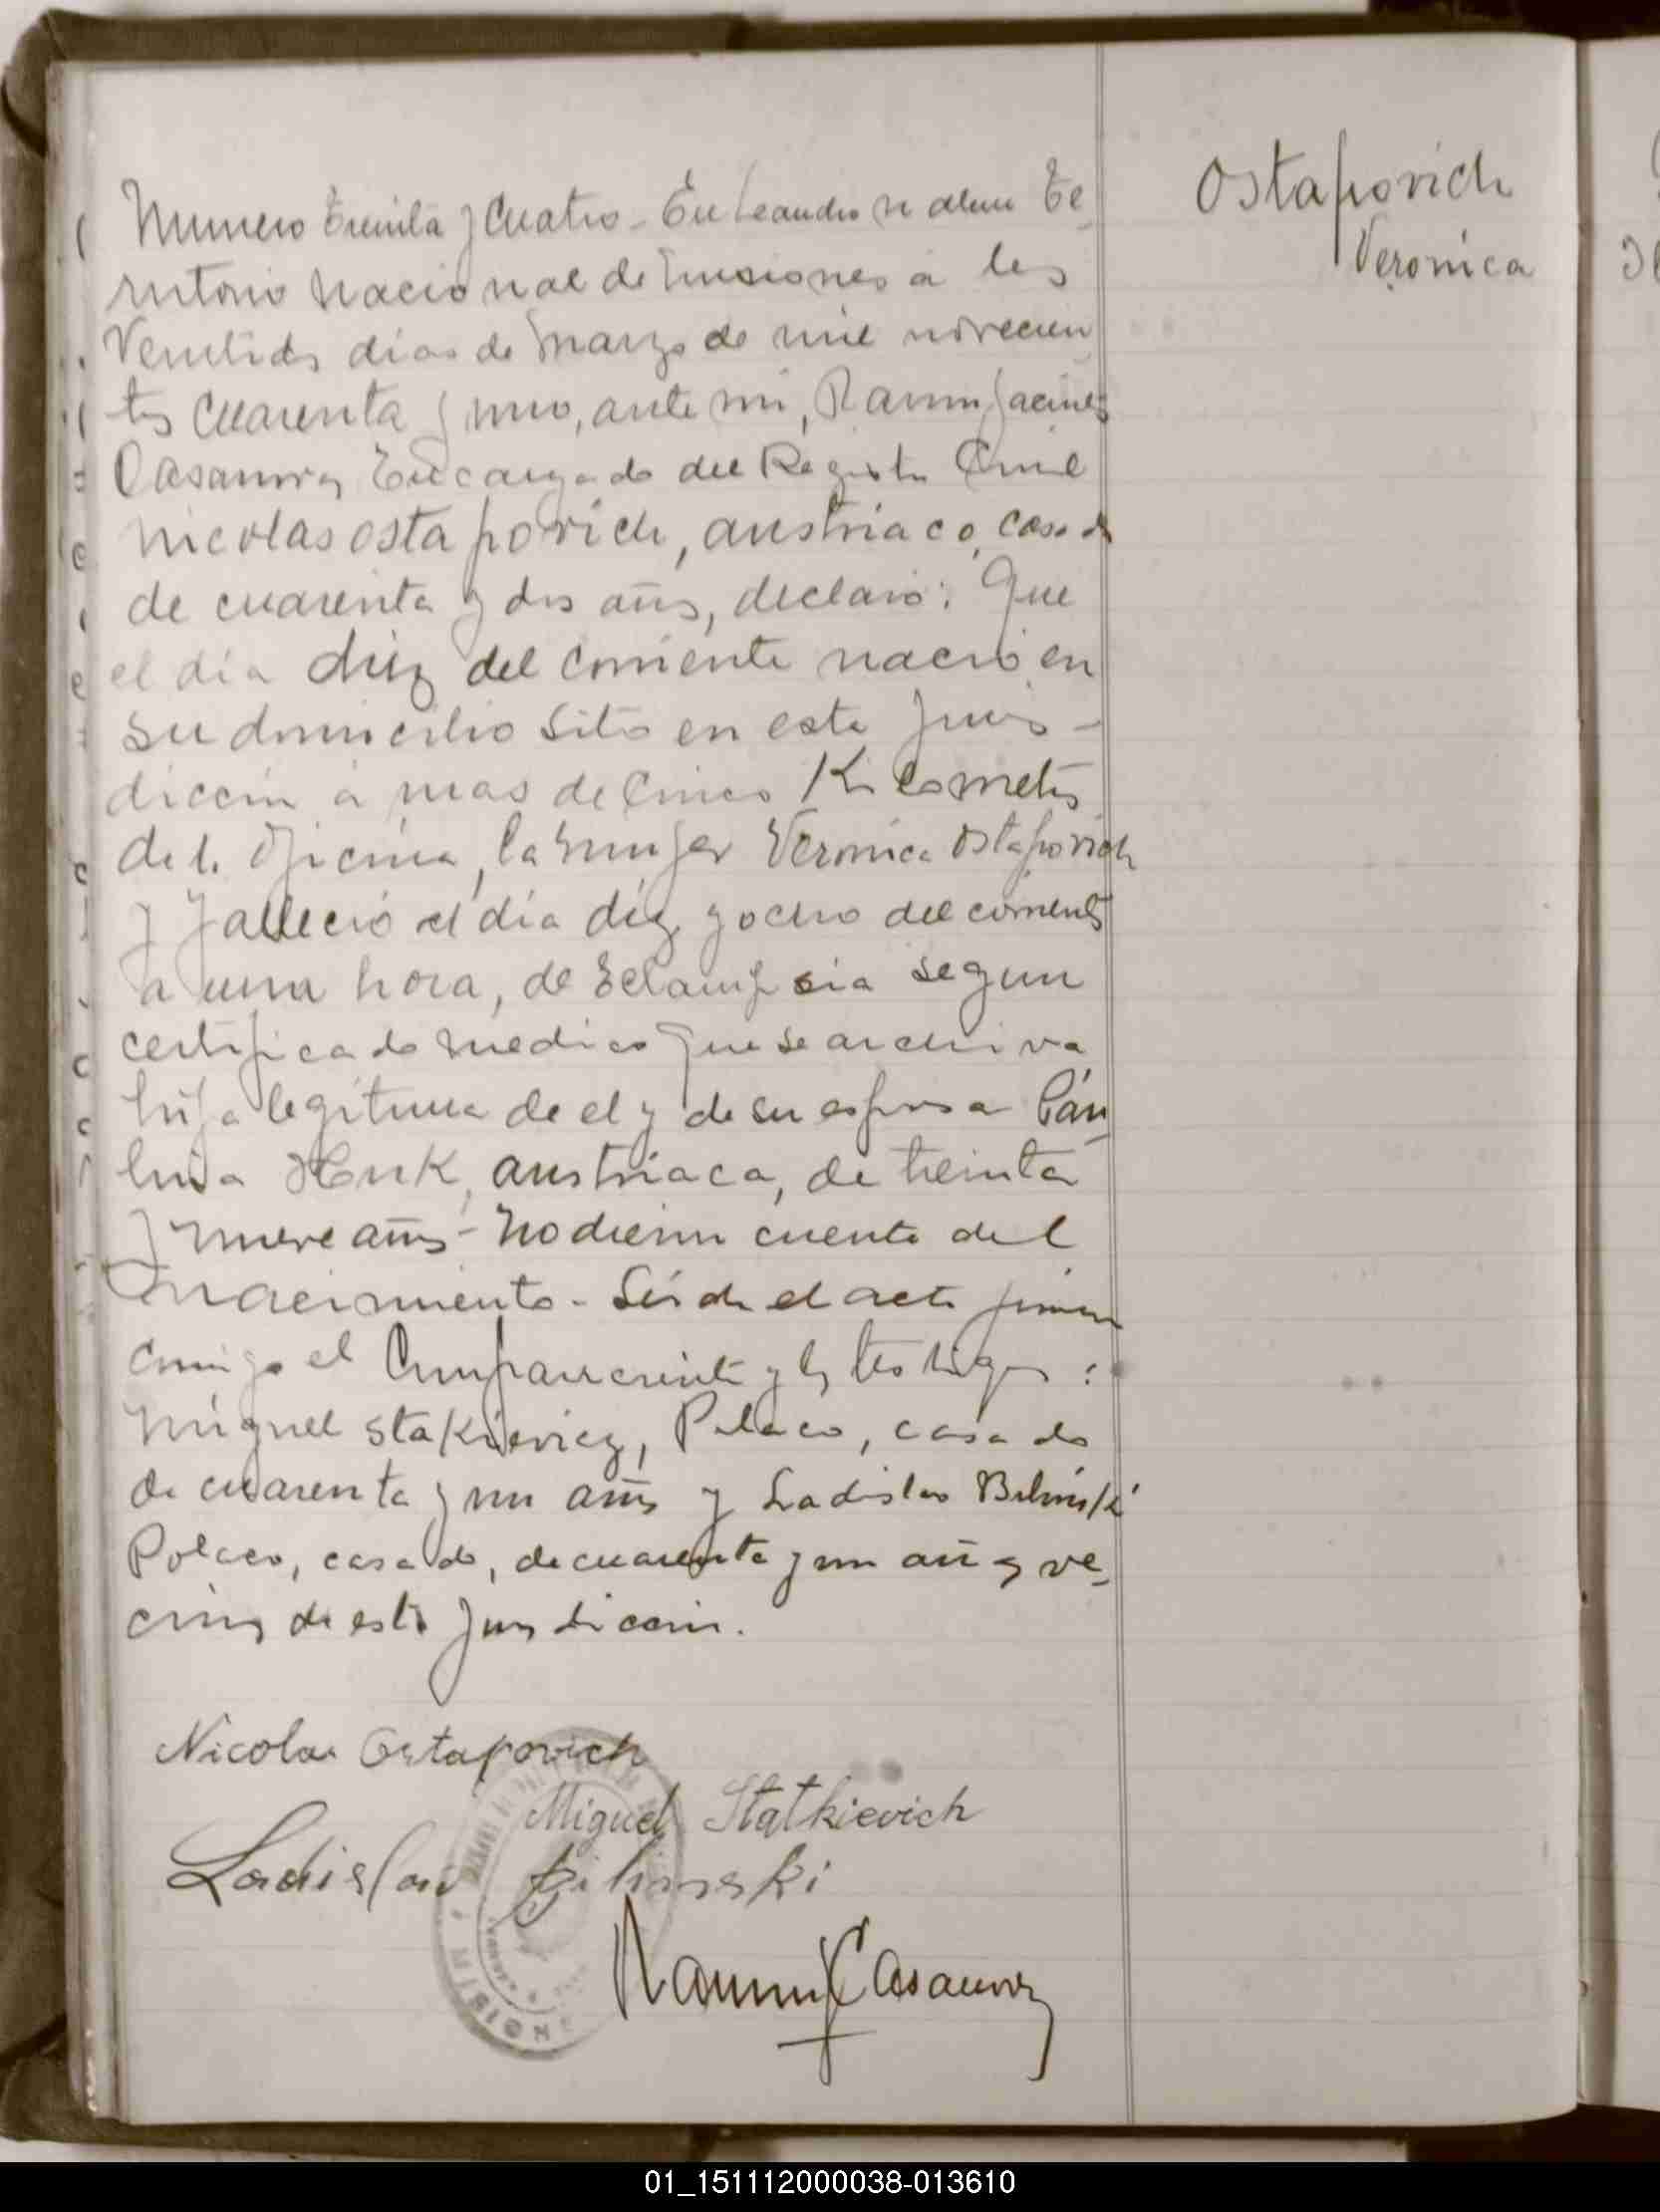 Ostapovich
Veronica
Numero Treinta y Cuatro - En Leandro N Alem Te-
rritorio Nacional de Misiones a los
Veintidos dias de Marzo de mil novecien
tos cuarenta y uno, ante mi, Ramon
Casanova, Encargado del Registro Civil
Nicolas Ostapovich, austriaco, casado
de cuarenta y dos años, declaró: Que
el día diez del corriente nació en
su domicilio sito en esta juris-
diccion a mas de cinco Kilometros
de la Oficina, la mujer Veronica Ostapovich
y falleció el día diez y ocho del corriente
a una hora, de Eclampsia segun
certificado medico que se archiva
hija legitima de el y de su esposa
Huk, austriaca, de treinta
y nueve años - No dieron cuenta del
nacimiento - Leida el acta firman
conmigo el compareciente y los testigos:
Miguel Stakievicz, Polaco, casado
de cuarenta y un años y Ladislao Bilinski
Polaco, casado, de cuarenta y un años ve-
cinos de esta jurisdiccion.
Nicolas Ostapovich
Miguel Statkievich
Ladislao Bilinski
Ramon J Casanova
01_151112000038-013610